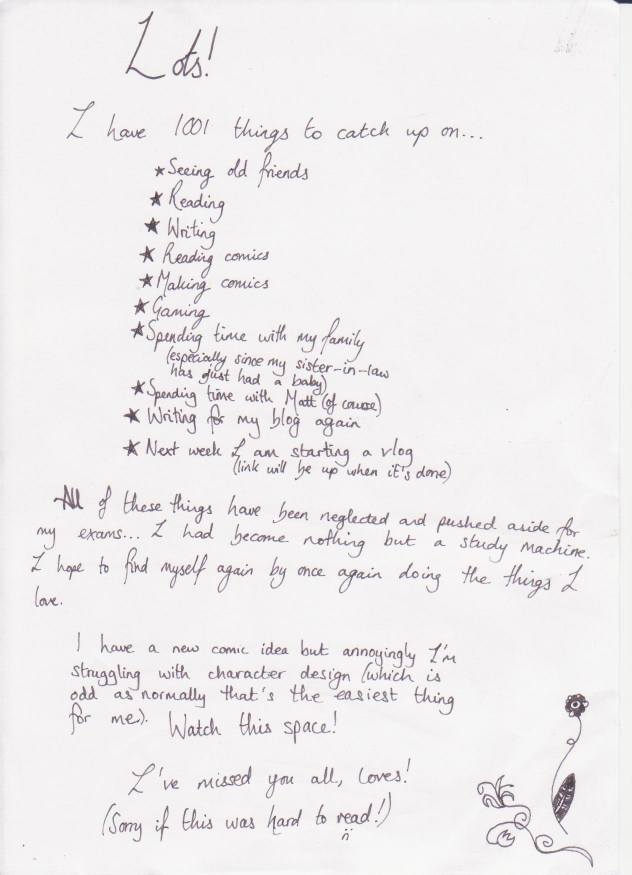 Lots!
I have 1001 things to catch up on...
★ Seeing old friends
★ Reading
★ Writing
★ Reading comics
★ Making comics
★ Gaming
★ Spending time with my family
(especially since my sister-in-law
has just had a baby)
★ Spending time with Matt (of course)
★ Writing for my blog again
★ Next week I am starting a vlog
(link will be up when it's done)
All of these things have been neglected and pushed aside for
my exams... I had become nothing but a study machine.
I hope to find myself again by once again doing the things I
love.
I have a new comic idea but annoyingly I'm
struggling with character design (which is
odd as normally that's the easiest thing
for me). Watch this space!
I've missed you all, loves!
(Sorry if this was hard to read!)